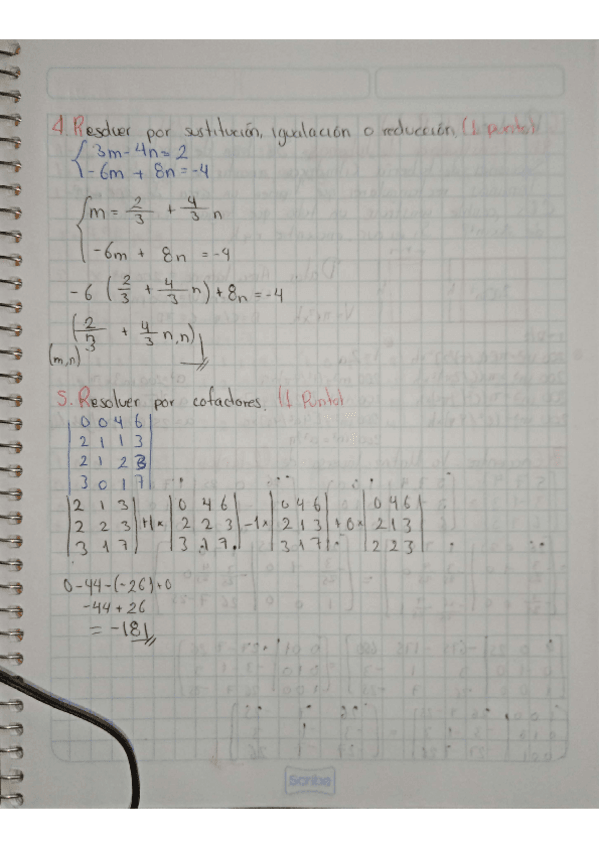 4. Resolver por sustitución, igualación o reducción. (1 punto)
3m - 4n = 2
-6m + 8n = -4
m = 2/3 + 4/3 n
-6m + 8n = -4
-6 (2/3 + 4/3 n) + 8n = -4
(2/3 + 4/3 n, n)
(m,n)
5. Resolver por cofactores. (1 Punto)
|0 0 4 6|
|2 1 1 3|
|2 1 2 3|
|3 0 1 7|
|2 1 3| |0 4 6| |0 4 6| |0 4 6|
|2 2 3| +1× |2 2 3| -1× |2 1 3| +0× |2 1 3|
|3 1 7| |3 1 7| |3 1 7| |2 2 3|
0 - 44 - (-26) + 0
-44 + 26
= -18
Scribe